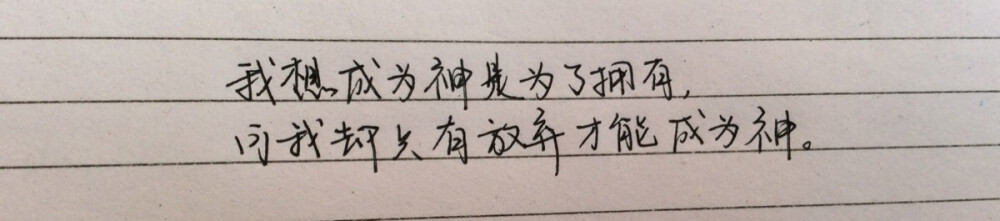 我想成为神是为了拥有,
可我却只有放弃才能成为神。